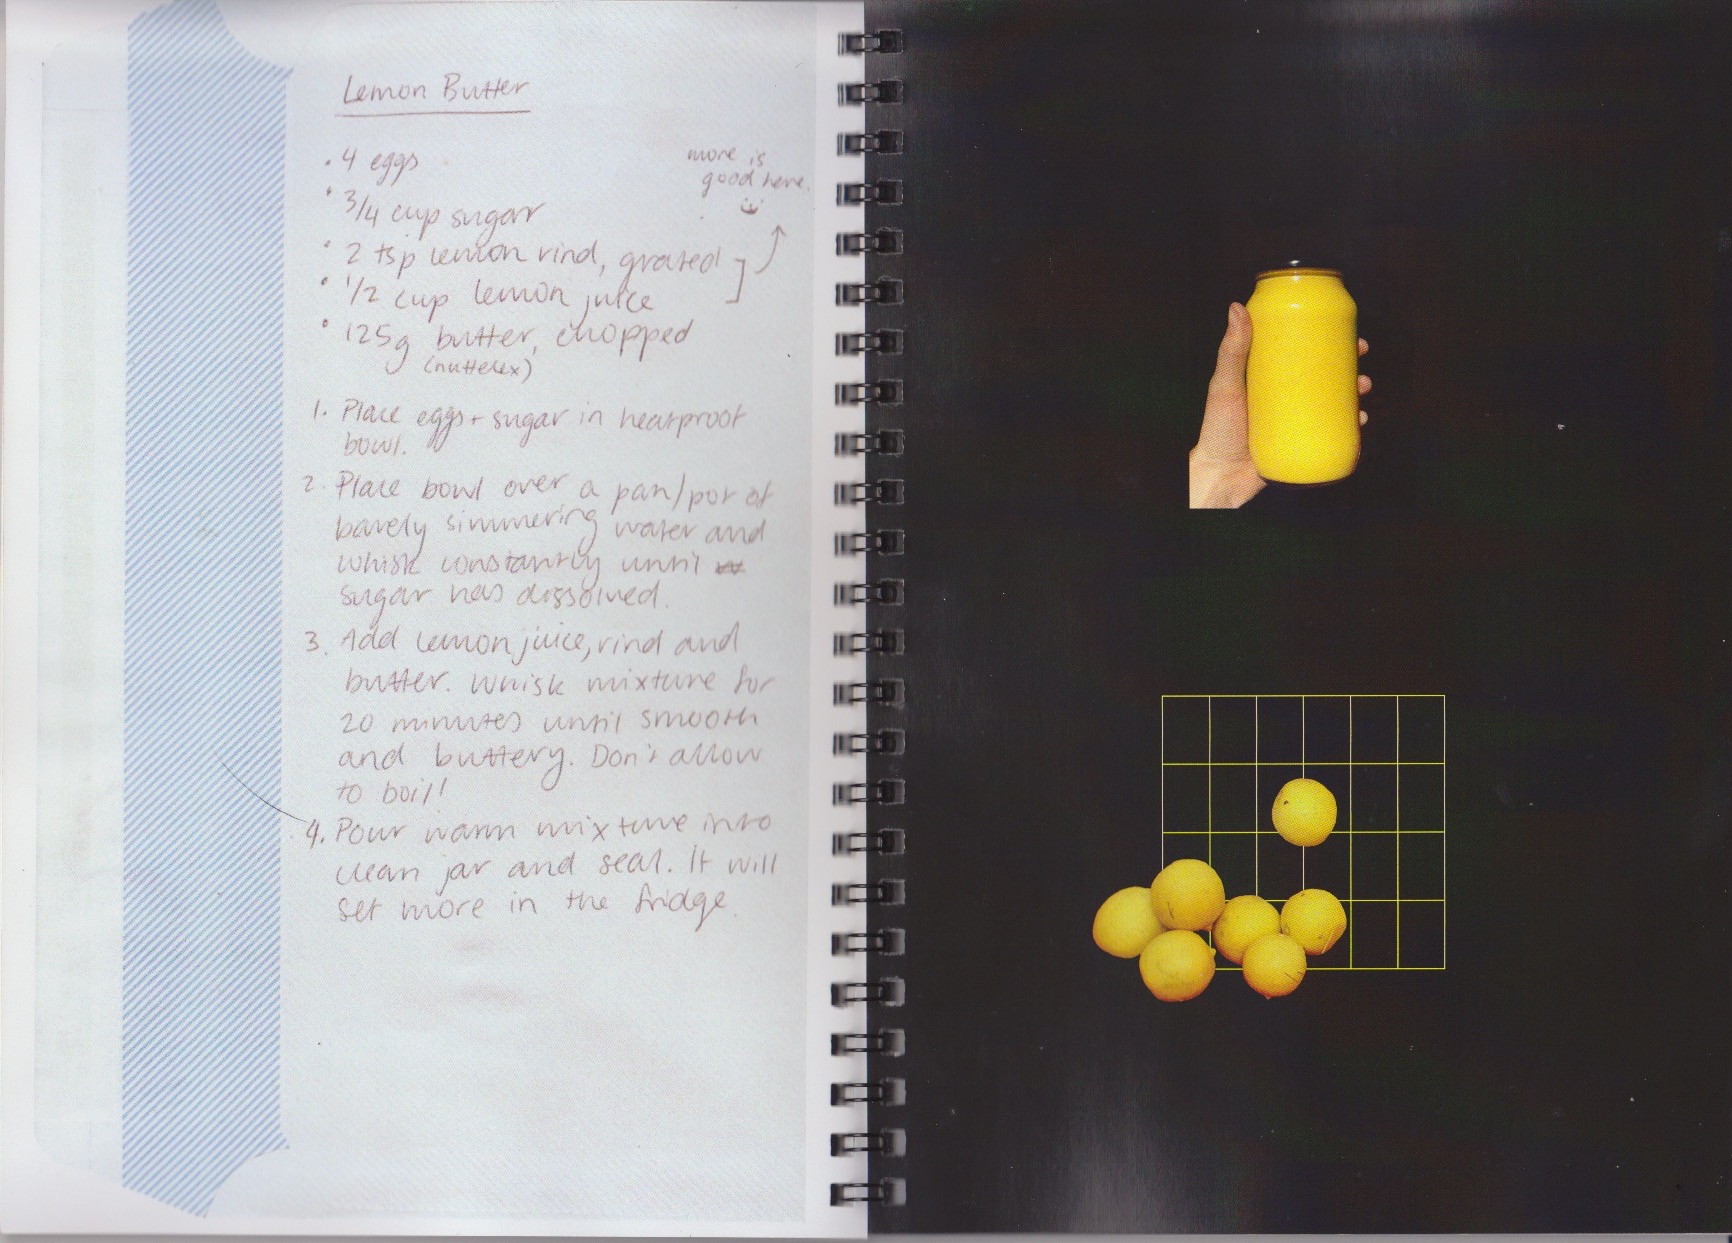 Lemon Butter
• 4 eggs
• 3/4 cup sugar
• 2 tsp lemon rind, grated
• 1/2 cup lemon juice
more is
good here.
• 125g butter, chopped
(nuttelex)
1. Place eggs + sugar in heatproof
bowl.
2. Place bowl over a pan/pot of
barely simmering water and
whisk constantly until
sugar has dissolved.
3. Add lemon juice, rind and
butter. Whisk mixture for
20 minutes until smooth
and buttery. Don't allow
to boil!
4. Pour warm mixture into
clean jar and seal. It will
set more in the fridge.